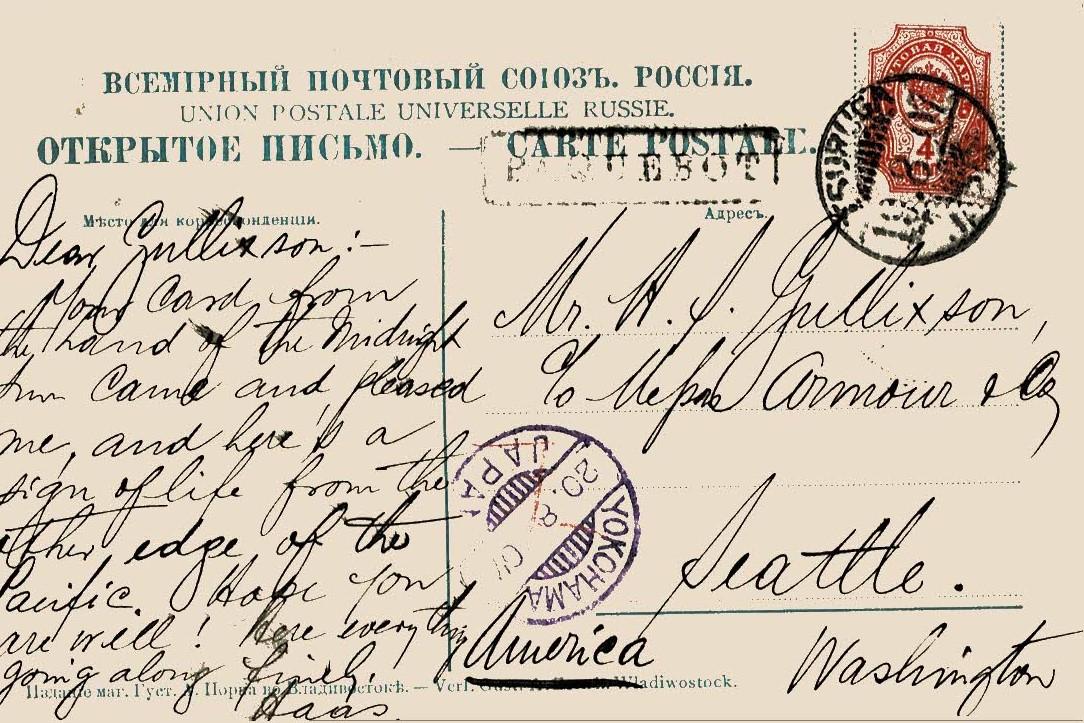 ВСЕМІРНЫЙ ПОЧТОВЫЙ СОІОЗЪ. РОССІЯ.
UNION POSTALE UNIVERSELLE RUSSIE.
ОТКРЫТОЕ ПИСЬМО. — CARTE POSTALE.
PAQUEBOT
TSURUGA
JAPAN
4
Мѣсто для корреспонденціи.
Адресъ.
Dear Gullixson:—
Your Card from
the Land of the Midnight
Sun Came and pleased
me, and here's a
sign of life from the
other edge of the
Pacific. Hope you
are well! Here everything
going along finely.
Haas.
Mr. H. J. Gullixson,
c/o Messrs Armour & Co
Seattle.
Washington
America
YOKOHAMA
20. 8 07
JAPAN
Изданіе маг. Густ. во Владивостокѣ. — Verl. Wladiwostock.